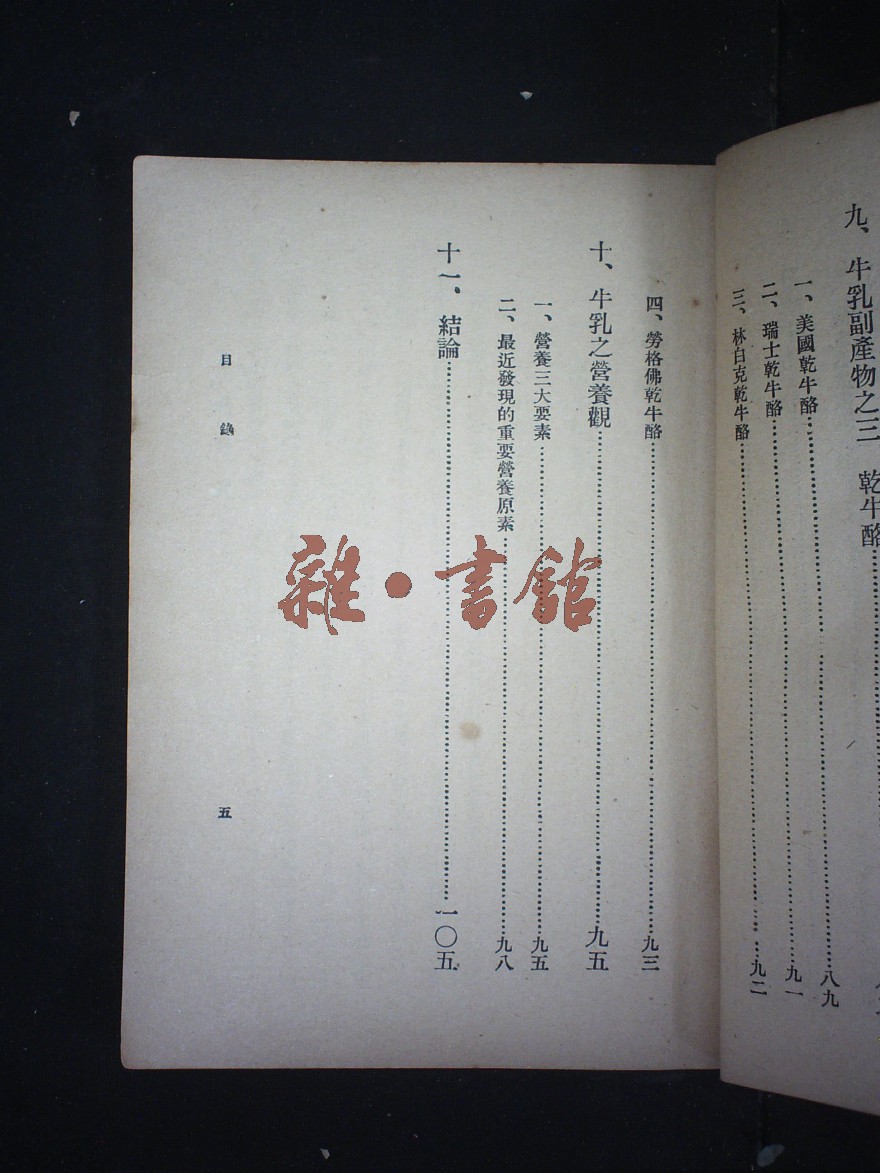 九、牛乳副產物之三　乾牛酪
一、美國乾牛酪……八九
二、瑞士乾牛酪……九一
三、林白克乾牛酪……九二
四、勞格佛乾牛酪……九三
十、牛乳之營養觀……九五
一、營養三大要素……九五
二、最近發現的重要營養原素……九八
十一、結論……一〇五
目錄
五
雜·書館